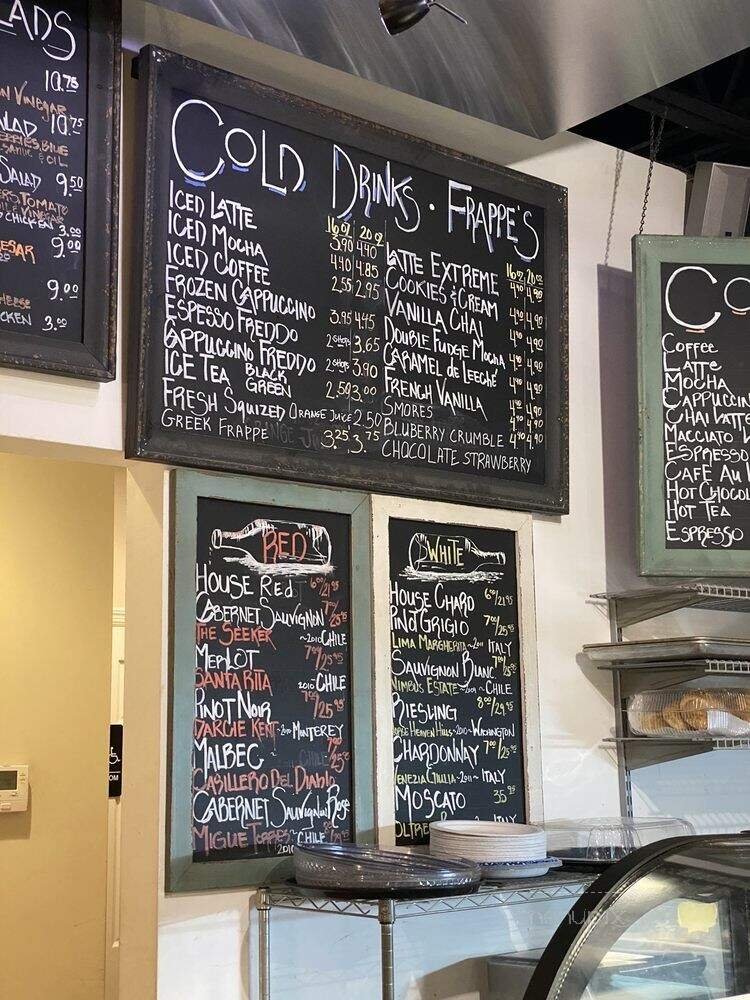 ADS
10.75
N VINEGAR
10.75
ALAD
SALAD 9.50
TOMATO
CHICKEN 3.00
9.00
9.00
CKEN 3.00
COLD DRINKS . FRAPPE'S
16 oz 20 oz
ICED LATTE 3.90 4.40
ICED MOCHA 4.40 4.85
ICED COFFEE 2.55 2.95
FROZEN CAPPUCCINO 3.95 4.45
ESPESSO FREDDO 2 SHOTS 3.65
CAPPUCCINO FREDDO 2 SHOTS 3.90
ICE TEA BLACK GREEN 2.50 3.00
FRESH SQUIZED ORANGE JUICE 2.50
GREEK FRAPPE 3.25 3.75
16 oz 20 oz
LATTE EXTREME 4.40 4.90
COOKIES & CREAM 4.40 4.90
VANILLA CHAI 4.40 4.90
DOUBLE FUDGE MOCHA 4.40 4.90
CARAMEL DE LEECHE 4.40 4.90
FRENCH VANILLA 4.40 4.90
SMORES 4.40 4.90
BLUBERRY CRUMBLE 4.40 4.90
CHOCOLATE STRAWBERRY
CO
COFFEE
LATTE
MOCHA
CAPPUCCIN
CHAI LATTE
MACCIATO
ESPRESSO
CAFÉ AU
HOT CHOCOL
HOT TEA
ESPRESSO
RED
HOUSE RED 6.00/21.95
CABERNET SAUVIGNON 7.00/25.95
THE SEEKER ~2010 CHILE
MERLOT 7.00/25.95
SANTA RITA 2010 CHILE
PINOT NOIR 7.00/25.95
DARCIE KENT -2010 MONTEREY
MALBEC
CASILLERO DEL DIABLO
CABERNET SAUVIGNON ROSE
MIGUE TORRES ~ CHILE
2010
WHITE
HOUSE CHARD 6.00/21.95
PINOT GRIGIO 7.00/25.95
LIMA MARGHERITA ~2011 ITALY
SAUVIGNON BLANC 7.00/25.95
NIMBUS ESTATE ~ CHILE
RIESLING 8.00/29.95
HORSE HEAVEN HILLS ~2010~ WASHINGTON
CHARDONNAY 7.00/25.95
VENEZIA GIULIA ~2011~ ITALY
MOSCATO 35.95
OLTRE ITALY